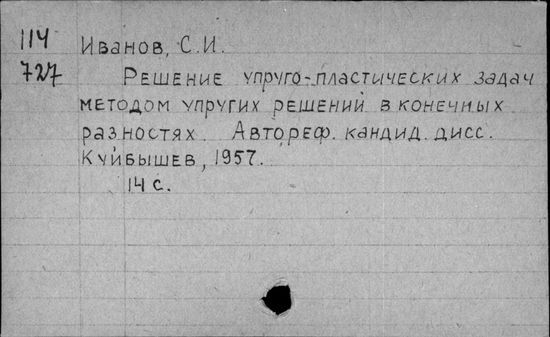 114
727
Иванов, С.И.
Решение упруго-пластических задач
методом упругих решений в конечных
разностях. Автореф. кандид. дисс.
Куйбышев, 1957.
14 с.